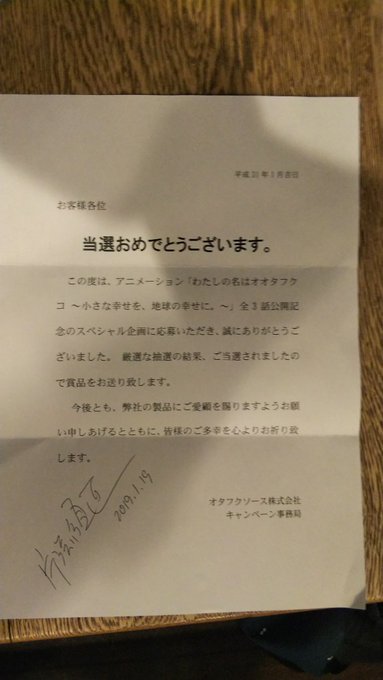 平成31年1月吉日
お客様各位
当選おめでとうございます。
この度は、アニメーション「わたしの名はオオタフク
コ ～小さな幸せを、地球の幸せに。～」全3話公開記
念のスペシャル企画に応募いただき、誠にありがとうご
ざいました。 厳選な抽選の結果、ご当選されましたの
で賞品をお送り致します。
今後とも、弊社の製品にご愛顧を賜りますようお願
い申しあげるとともに、皆様のご多幸を心よりお祈り致
します。
オタフクソース株式会社
キャンペーン事務局
2019.1.19